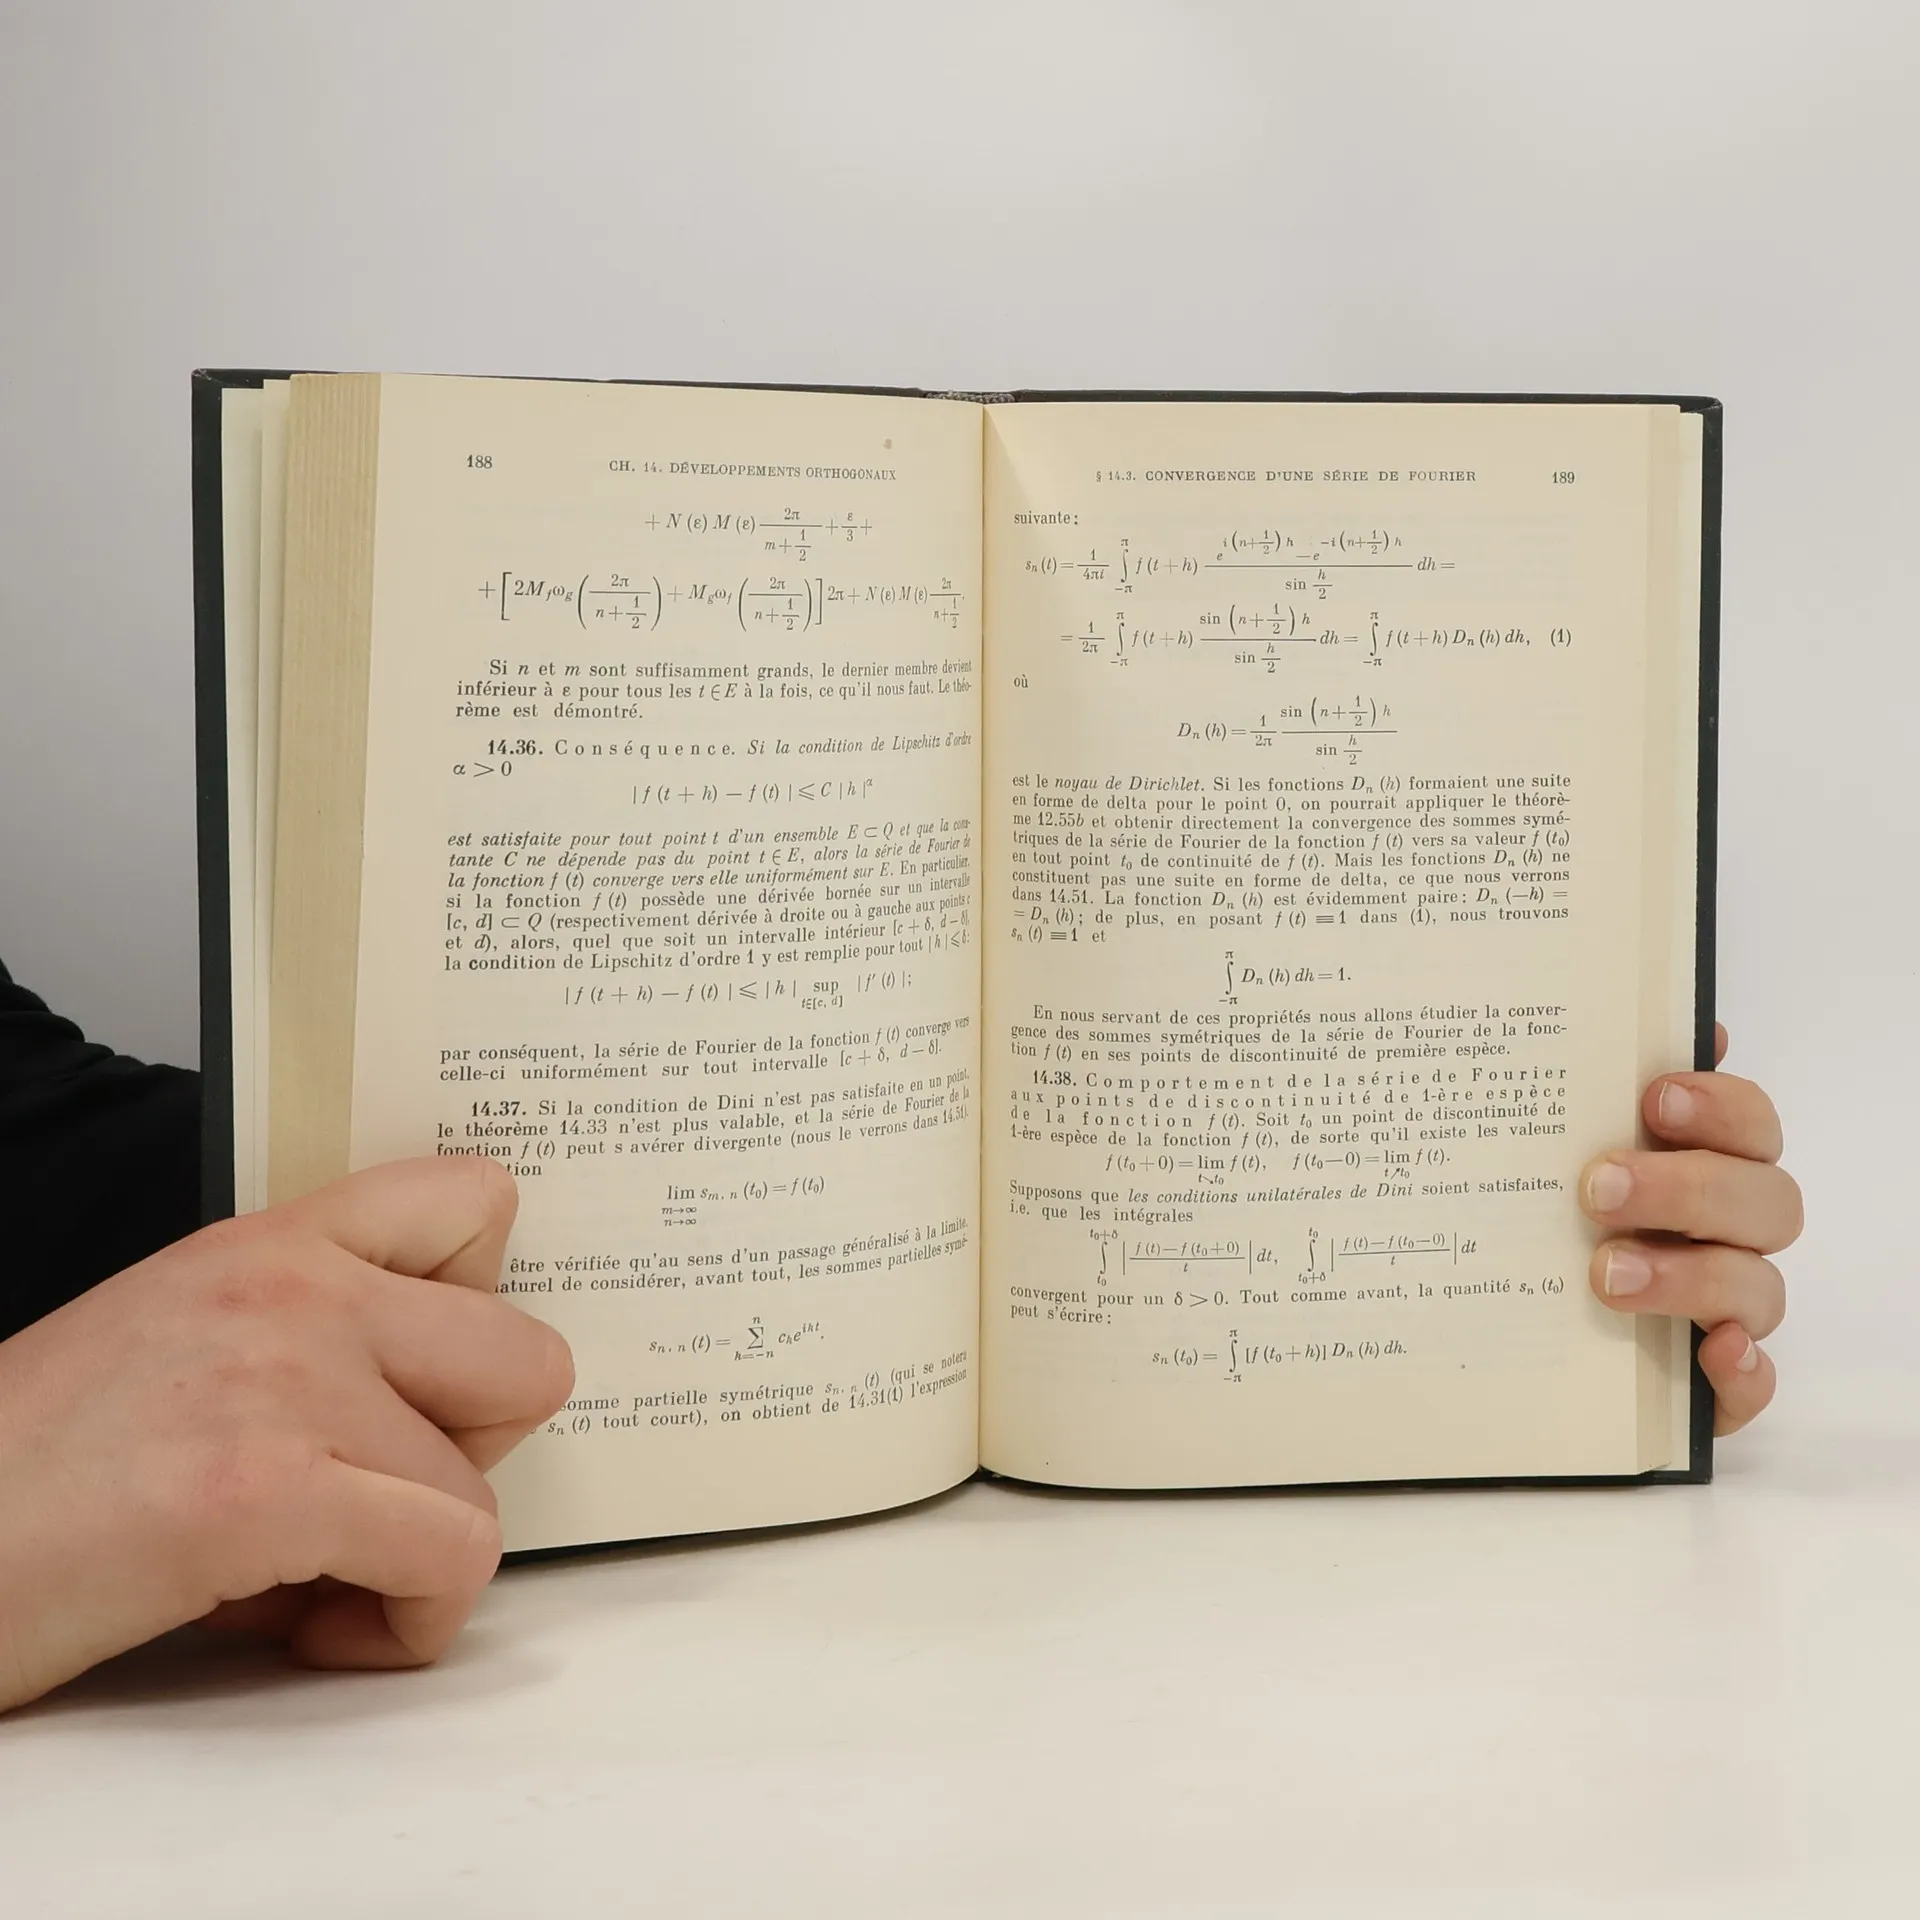 188 CH. 14. DÉVELOPPEMENTS ORTHOGONAUX
+ N (ε) M (ε) 2π/(m + 1/2) + ε/3 +
+ [2M_f ω_g (2π/(n + 1/2)) + M_g ω_f (2π/(n + 1/2))] 2π + N (ε) M (ε) 2π/(n + 1/2).
Si n et m sont suffisamment grands, le dernier membre devient
inférieur à ε pour tous les t ∈ E à la fois, ce qu'il nous faut. Le théo-
rème est démontré.
14.36. Conséquence. Si la condition de Lipschitz d'ordre
α > 0
| f (t + h) — f (t) | ⩽ C | h |^α
est satisfaite pour tout point t d'un ensemble E ⊂ Q et que la cons-
tante C ne dépende pas du point t ∈ E, alors la série de Fourier de
la fonction f (t) converge vers elle uniformément sur E. En particulier,
si la fonction f (t) possède une dérivée bornée sur un intervalle
[c, d] ⊂ Q (respectivement dérivée à droite ou à gauche aux points c
et d), alors, quel que soit un intervalle intérieur [c + δ, d — δ],
la condition de Lipschitz d'ordre 1 y est remplie pour tout | h | ⩽ δ:
| f (t + h) — f (t) | ⩽ | h | sup_{t∈[c, d]} | f′ (t) |;
par conséquent, la série de Fourier de la fonction f (t) converge vers
celle-ci uniformément sur tout intervalle [c + δ, d — δ].
14.37. Si la condition de Dini n'est pas satisfaite en un point,
le théorème 14.33 n'est plus valable, et la série de Fourier de la
fonction f (t) peut s avérer divergente (nous le verrons dans 14.51).
tion
lim_{m→∞, n→∞} s_{m, n} (t₀) = f (t₀)
être vérifiée qu'au sens d'un passage généralisé à la limite.
aturel de considérer, avant tout, les sommes partielles symé-
s_{n, n} (t) = ∑_{k=—n}^{n} c_k e^{ikt}.
somme partielle symétrique s_{n, n} (t) (qui se notera
s_n (t) tout court), on obtient de 14.31(1) l'expression
§ 14.3. CONVERGENCE D'UNE SÉRIE DE FOURIER 189
suivante:
s_n (t) = 1/(4πi) ∫_{—π}^{π} f (t + h) (e^{i(n + 1/2) h} — e^{—i(n + 1/2) h})/(sin h/2) dh =
= 1/(2π) ∫_{—π}^{π} f (t + h) (sin (n + 1/2) h)/(sin h/2) dh = ∫_{—π}^{π} f (t + h) D_n (h) dh, (1)
où
D_n (h) = 1/(2π) (sin (n + 1/2) h)/(sin h/2)
est le noyau de Dirichlet. Si les fonctions D_n (h) formaient une suite
en forme de delta pour le point 0, on pourrait appliquer le théorè-
me 12.55b et obtenir directement la convergence des sommes symé-
triques de la série de Fourier de la fonction f (t) vers sa valeur f (t₀)
en tout point t₀ de continuité de f (t). Mais les fonctions D_n (h) ne
constituent pas une suite en forme de delta, ce que nous verrons
dans 14.51. La fonction D_n (h) est évidemment paire: D_n (—h) =
= D_n (h); de plus, en posant f (t) ≡ 1 dans (1), nous trouvons
s_n (t) ≡ 1 et
∫_{—π}^{π} D_n (h) dh = 1.
En nous servant de ces propriétés nous allons étudier la conver-
gence des sommes symétriques de la série de Fourier de la fonc-
tion f (t) en ses points de discontinuité de première espèce.
14.38. Comportement de la série de Fourier
aux points de discontinuité de 1-ère espèce
de la fonction f (t). Soit t₀ un point de discontinuité de
1-ère espèce de la fonction f (t), de sorte qu'il existe les valeurs
f (t₀ + 0) = lim_{t↘t₀} f (t), f (t₀ — 0) = lim_{t↗t₀} f (t).
Supposons que les conditions unilatérales de Dini soient satisfaites,
i.e. que les intégrales
∫_{t₀}^{t₀+δ} | (f (t) — f (t₀ + 0))/t | dt, ∫_{t₀+δ}^{t₀} | (f (t) — f (t₀ — 0))/t | dt
convergent pour un δ > 0. Tout comme avant, la quantité s_n (t₀)
peut s'écrire:
s_n (t₀) = ∫_{—π}^{π} [f (t₀ + h)] D_n (h) dh.